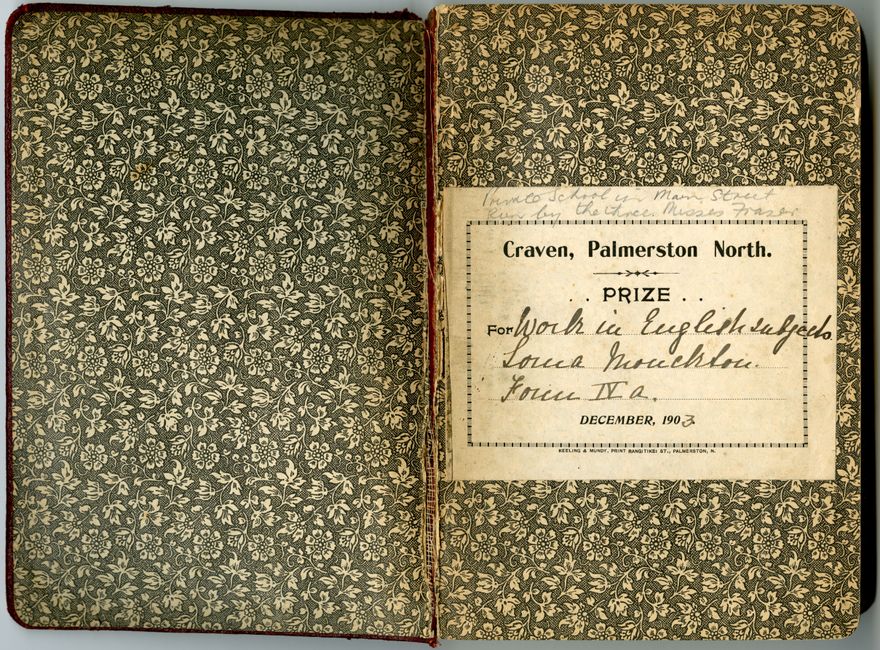 Private School in Main Street
Run by the three Misses Fraser
Craven, Palmerston North.
. . PRIZE . .
For Work in English subjects
Lorna Monckton.
Form IV a.
DECEMBER, 1903
KEELING & MUNDY, PRINT RANGITIKEI ST., PALMERSTON, N.